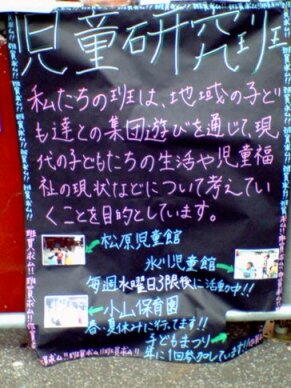 児童研究班
私たちの班は、地域の子ど
も達との集団遊びを通じて、現
代の子どもたちの生活や児童福
祉の現状などについて考えてい
くことを目的としています。
松原児童館
氷川児童館
毎週水曜日3限後に活動中!!
小山保育園
春・夏休みに行ってます!!
子どもまつり
年に1回参加しています!!